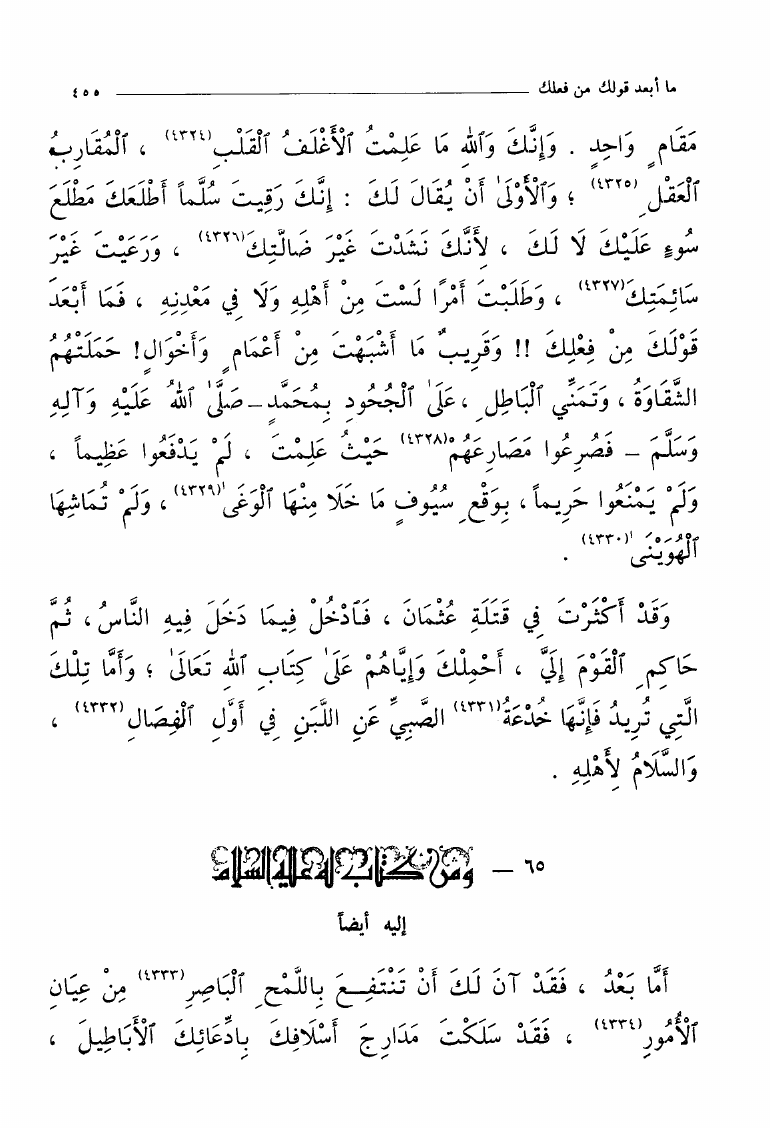 ما أبعد قولك من فعلك ٤٥٥
مَقَامٍ وَاحِدٍ . وَإِنَّكَ وَٱللهِ مَا عَلِمْتُ ٱلْأَغْلَفُ ٱلْقَلْبِ(٤٣٢٤) ، ٱلْمُقَارِبُ
ٱلْعَقْلِ(٤٣٢٥) ؛ وَٱلْأَوْلَىٰ أَنْ يُقَالَ لَكَ : إِنَّكَ رَقِيتَ سُلَّماً أَطْلَعَكَ مَطْلَعَ
سُوءٍ عَلَيْكَ لَا لَكَ ، لِأَنَّكَ نَشَدْتَ غَيْرَ ضَالَّتِكَ(٤٣٢٦) ، وَرَعَيْتَ غَيْرَ
سَائِمَتِكَ(٤٣٢٧) ، وَطَلَبْتَ أَمْرًا لَسْتَ مِنْ أَهْلِهِ وَلَا فِي مَعْدِنِهِ ، فَمَا أَبْعَدَ
قَوْلَكَ مِنْ فِعْلِكَ !! وَقَرِيبٌ مَا أَشْبَهْتَ مِنْ أَعْمَامٍ وَأَخْوَالٍ! حَمَلَتْهُمُ
الشَّقَاوَةُ ، وَتَمَنِّي ٱلْبَاطِلِ ، عَلَىٰ ٱلْجُحُودِ بِمُحَمَّدٍ ـ صَلَّىٰ ٱللهُ عَلَيْهِ وَآلِهِ
وَسَلَّمَ ـ فَصُرِعُوا مَصَارِعَهُمْ(٤٣٢٨) حَيْثُ عَلِمْتَ ، لَمْ يَدْفَعُوا عَظِيماً ،
وَلَمْ يَمْنَعُوا حَرِيماً ، بِوَقْعِ سُيُوفٍ مَا خَلَا مِنْهَا ٱلْوَغَىٰ(٤٣٢٩) ، وَلَمْ تُمَاشِهَا
ٱلْهُوَيْنَىٰ(٤٣٣٠) .
وَقَدْ أَكْثَرْتَ فِي قَتَلَةِ عُثْمَانَ ، فَٱدْخُلْ فِيمَا دَخَلَ فِيهِ النَّاسُ ، ثُمَّ
حَاكِمِ ٱلْقَوْمَ إِلَيَّ ، أَحْمِلْكَ وَإِيَّاهُمْ عَلَىٰ كِتَابِ ٱللهِ تَعَالَىٰ ؛ وَأَمَّا تِلْكَ
الَّتِي تُرِيدُ فَإِنَّهَا خُدْعَةُ(٤٣٣١) الصَّبِيِّ عَنِ اللَّبَنِ فِي أَوَّلِ ٱلْفِصَالِ(٤٣٣٢) ،
وَالسَّلَامُ لِأَهْلِهِ .
٦٥ ـ ومن كتاب له عليه السلام
إليه أيضاً
أَمَّا بَعْدُ ، فَقَدْ آنَ لَكَ أَنْ تَنْتَفِعَ بِاللَّمْحِ ٱلْبَاصِرِ(٤٣٣٣) مِنْ عِيَانِ
ٱلْأُمُورِ(٤٣٣٤) ، فَقَدْ سَلَكْتَ مَدَارِجَ أَسْلَافِكَ بِادِّعَائِكَ ٱلْأَبَاطِيلَ ،